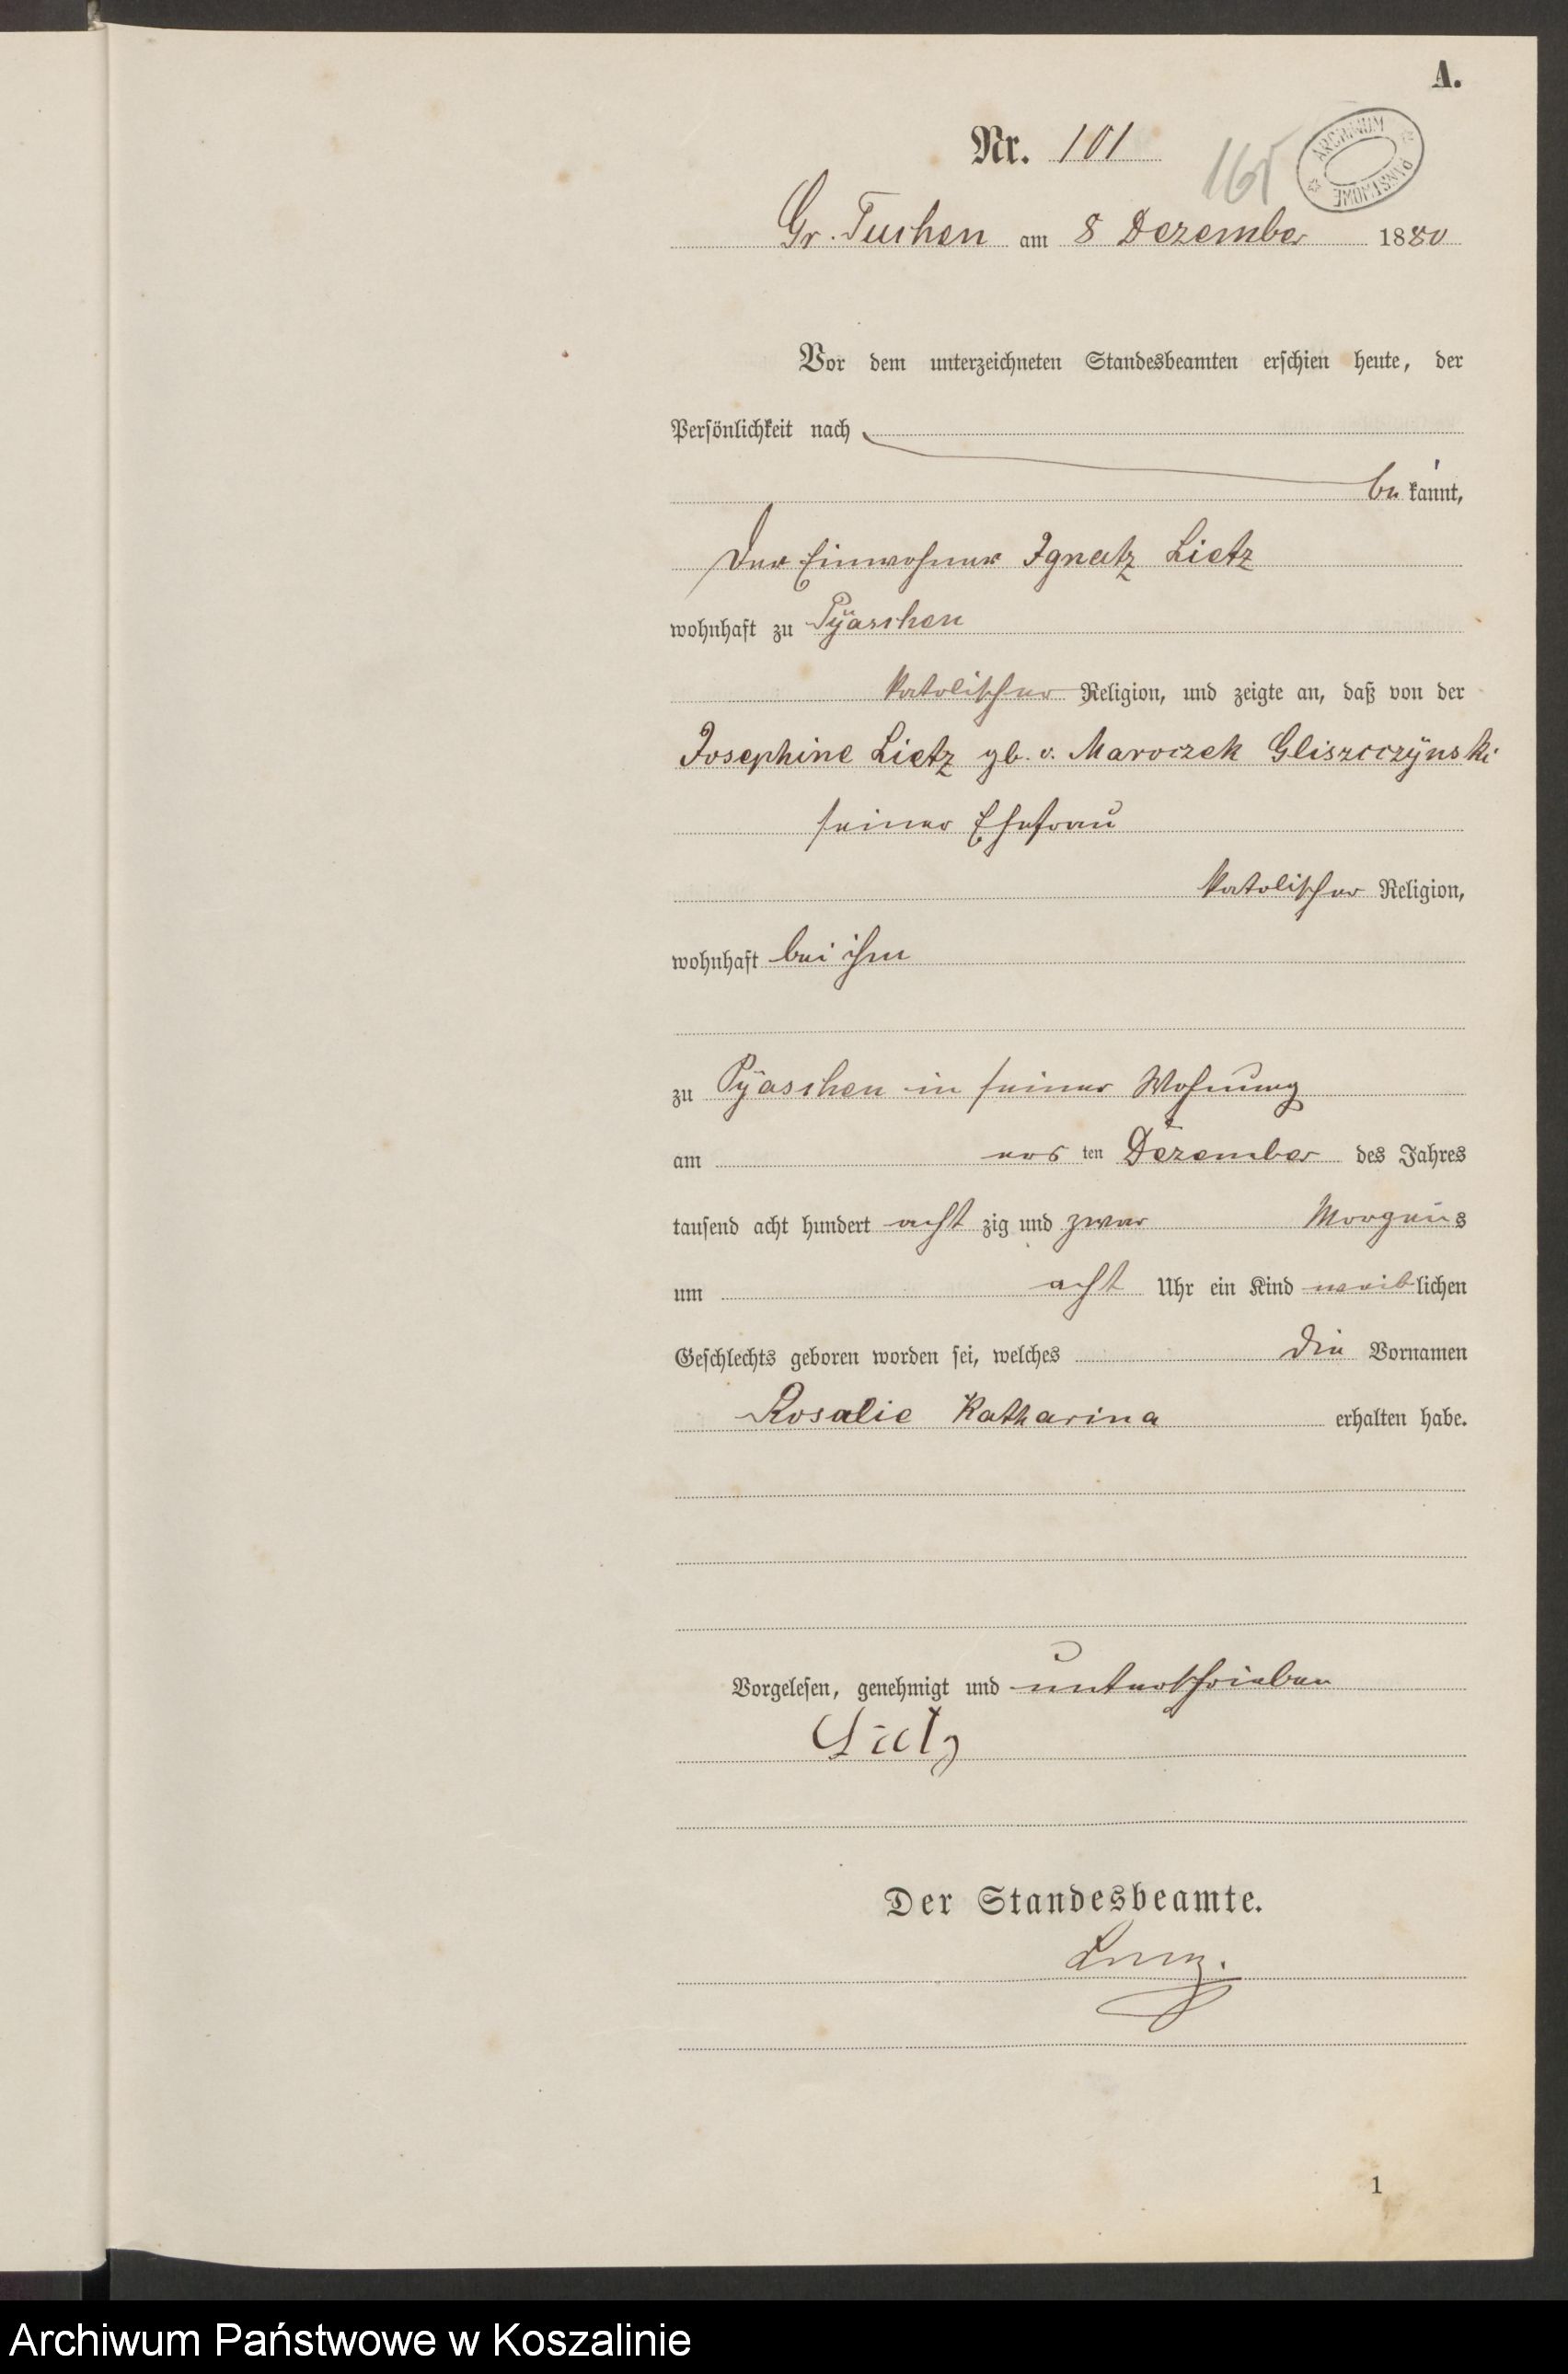 A.
Nr. 101
165
ARCHIWUM PAŃSTWOWE
Gr. Tuchen am 8 Dezember 1880
Vor dem unterzeichneten Standesbeamten erschien heute, der
Persönlichkeit nach
be kannt,
Der Einwohner Ignatz Lietz
wohnhaft zu Pÿaschen
katolischer Religion, und zeigte an, daß von der
Josephine Lietz gb. v. Maroczek Gliszcczÿnski
seiner Ehefrau
katolischer Religion,
wohnhaft bei ihm
zu Pÿaschen in seiner Wohnung
am ers ten Dezember des Jahres
tausend acht hundert acht zig und zwar Morgens
um acht Uhr ein Kind weib lichen
Geschlechts geboren worden sei, welches die Vornamen
Rosalie Katharina erhalten habe.
Vorgelesen, genehmigt und unterschrieben
Lietz
Der Standesbeamte.
1
Archiwum Państwowe w Koszalinie